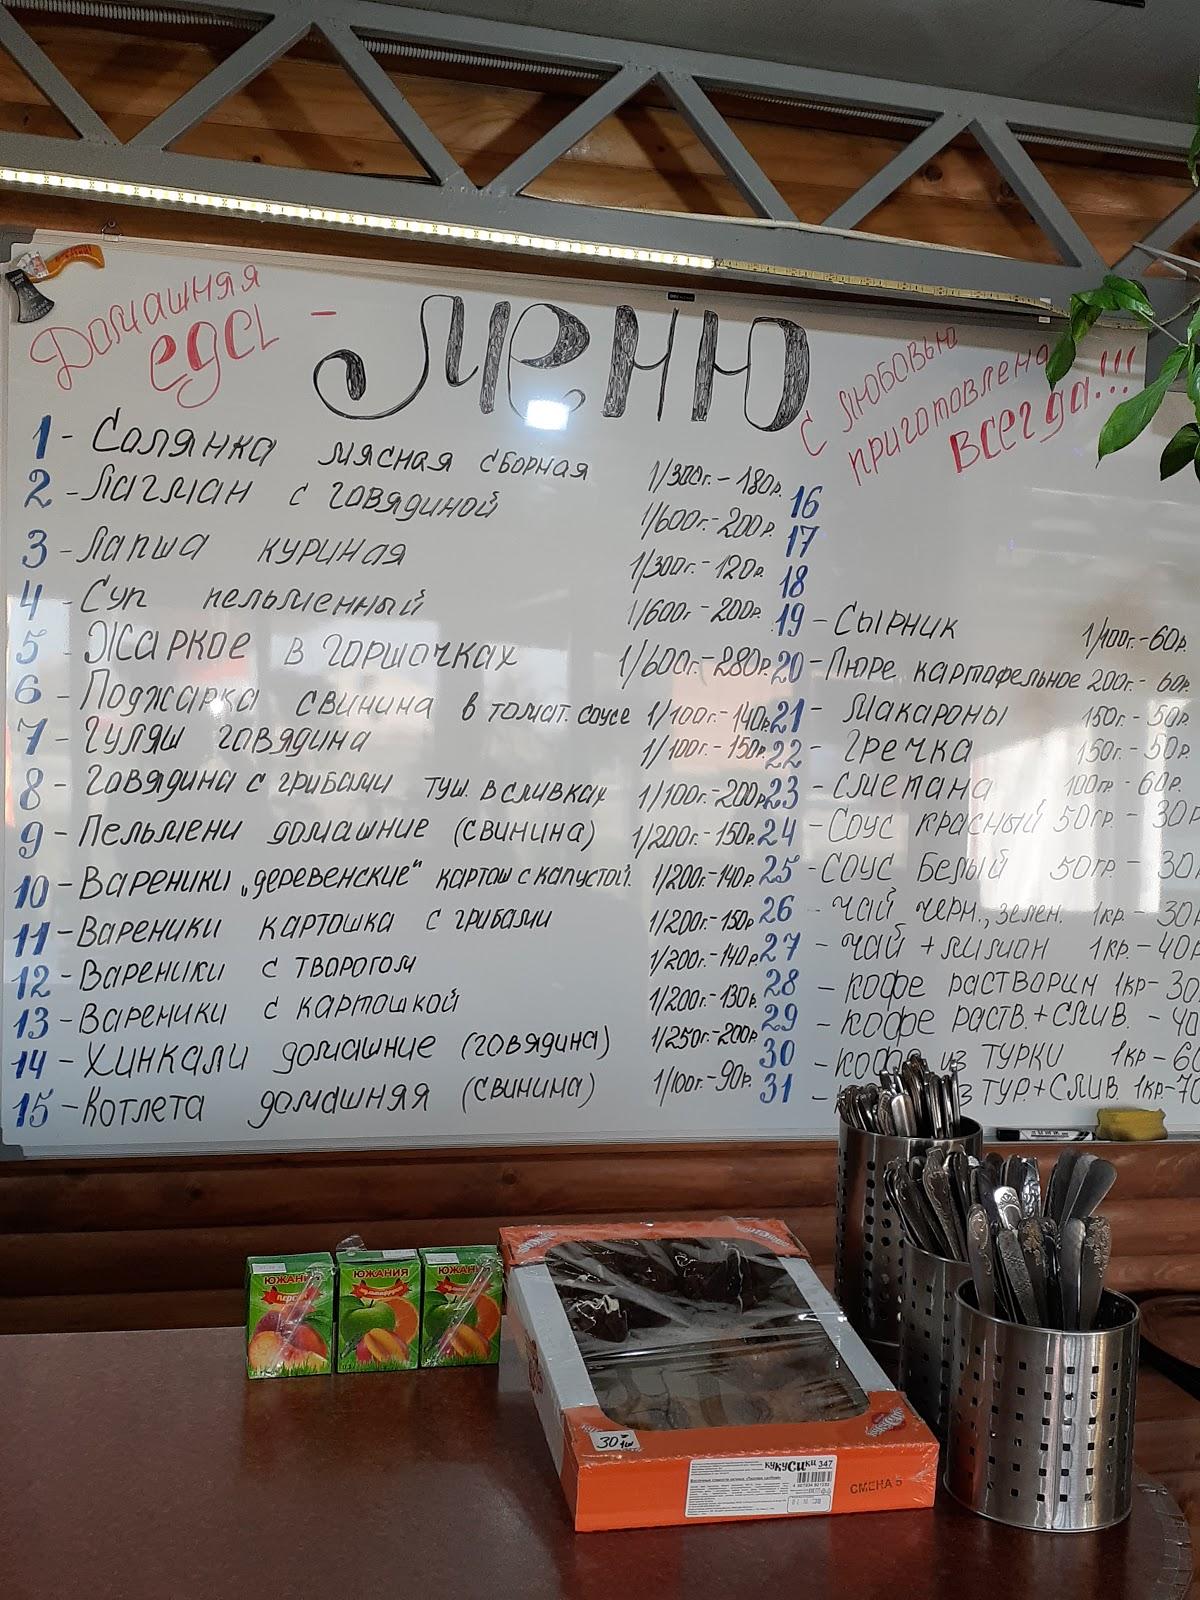 Домашняя
еда -
Меню
С любовью
приготовлена
Всегда!!!
1 - Солянка мясная сборная 1/300г. - 180р.
2 - Лагман с говядиной 1/600г. - 200р.
3 - Лапша куриная 1/300г. - 120р.
4 - Суп пельменный 1/600г - 200р.
5 - Жаркое в горшочках 1/600г. - 280р.
6 - Поджарка свинина в томат. соусе 1/100г. - 140р.
7 - Гуляш говядина 1/100г. - 150р.
8 - Говядина с грибами туш. в сливках 1/100г. - 200р.
9 - Пельмени домашние (свинина) 1/200г. - 150р.
10 - Вареники „деревенские“ картош с капустой. 1/200г. - 140р.
11 - Вареники картошка с грибами 1/200г. - 150р
12 - Вареники с творогом 1/200г. - 140р.
13 - Вареники с картошкой 1/200г. - 130р.
14 - Хинкали домашние (говядина) 1/250г. - 200р
15 - Котлета домашняя (свинина) 1/100г. - 90р.
16
17
18
19 - Сырник 1/100г. - 60р.
20 - Пюре картофельное 200г. - 60р.
21 - Макароны 150г. - 50р.
22 - Гречка 150г - 50р.
23 - Сметана 100гр - 60р.
24 - Соус красный 50гр. - 30р
25 - Соус Белый 50гр. - 30
26 - чай черн., зелен. 1кр. - 30
27 - чай + лимлн 1кр. - 40р
28 - кофе растворим 1кр - 30
29 - кофе раств. + слив. - 40
30 - кофе из турки 1кр - 60
31 - из тур. + слив. 1кр. - 70
ЮЖАНИ
перс
ЮЖАНИЯ
мультифрукт
ЮЖАНИЯ
30 1ш
кукуСики 347
СМЕНА 5